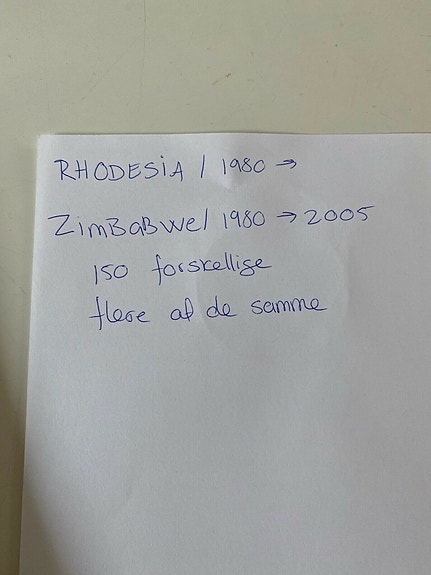 RHODESiA / 1980 →
ZimBaBwe/ 1980 → 2005
150 forskellige
flere af de samme